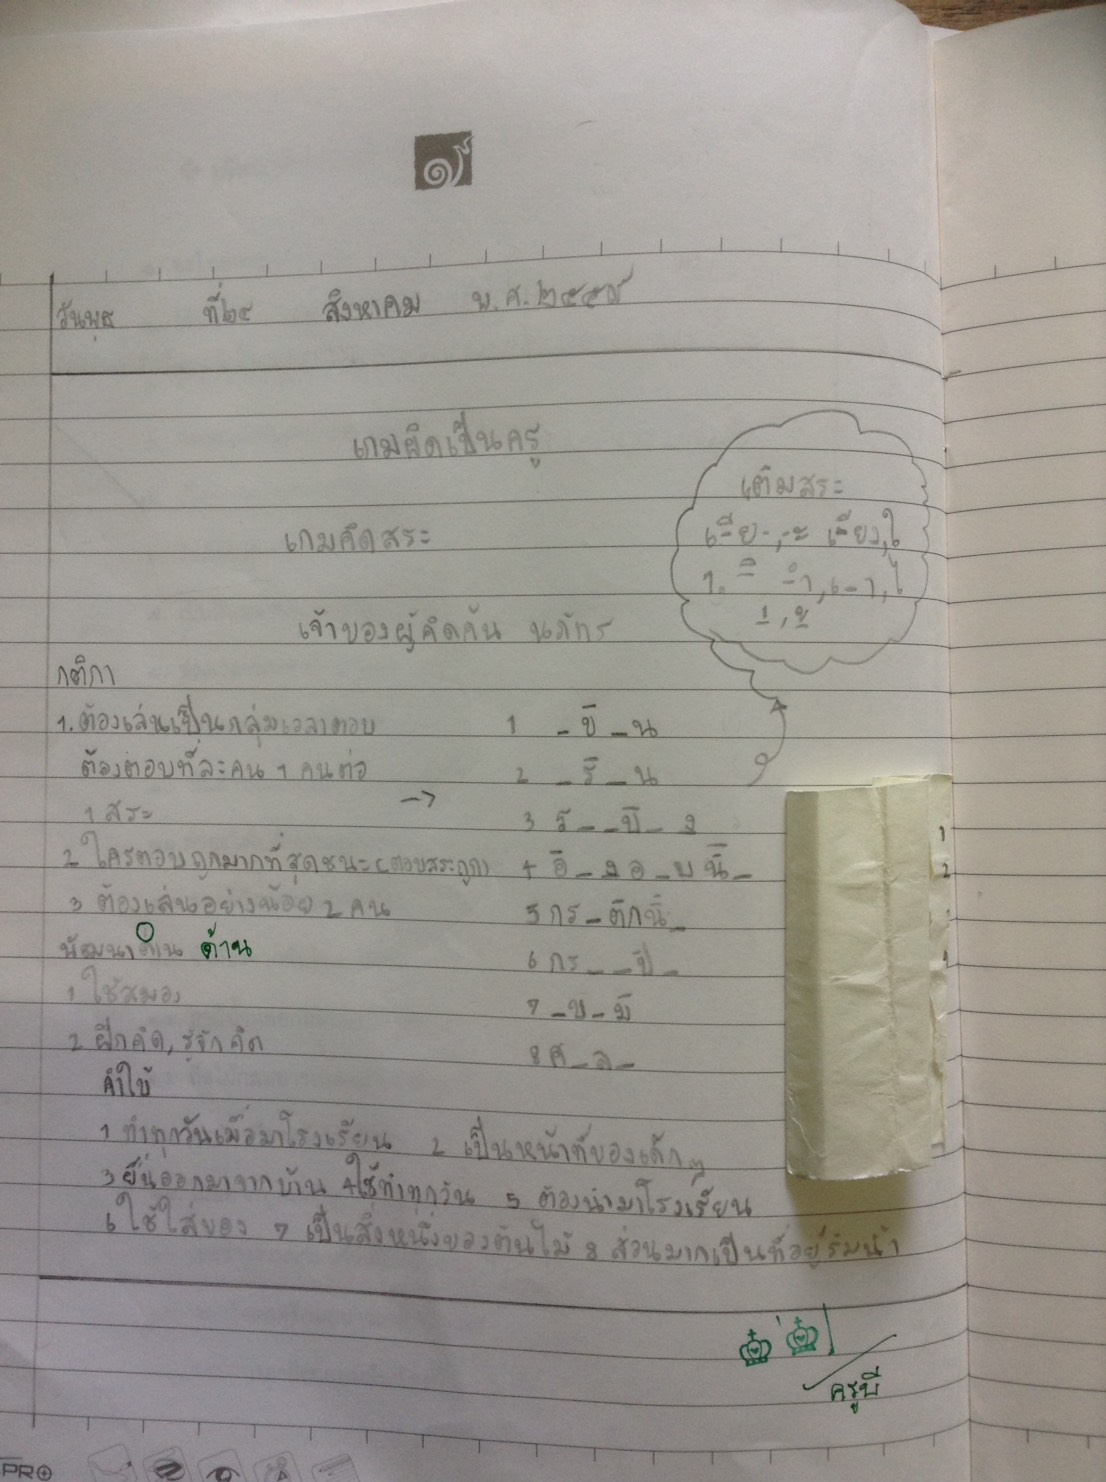 ๙
วันพุธ ที่๒๔ สิงหาคม พ.ศ.๒๕๕๙
เกมคิดเป็นครู
เกมคิดสระ
เจ้าของผู้คิดค้น นภัทร
เติมสระ
กติกา
1.ต้องเล่นเป็นกลุ่มเวลาตอบ
ต้องตอบทีละคน 1 คนต่อ
1 สระ ->
2 ใครตอบถูกมากที่สุดชนะ(ตอบสระถูก)
3 ต้องเล่นอย่างน้อย 2 คน
พัฒนา ด้าน
1 ใช้สมอง
2 ฝึกคิด, รู้จักคิด
1 _ ขี _ น
2 _ รี _ น
3 ร _ _ บี _ ง
4 อี _ ง อ _ บ นี้ _
5 กร _ ติกน้ _
6 กร _ _ ป๋ _
7 _ บ _ ม้
8 ศ _ ล _
คำใบ้
1 ทำทุกวันเมื่อมาโรงเรียน 2 เป็นหน้าที่ของเด็กๆ
3 ยื่นออกมาจากบ้าน 4 ใช้ทำทุกวัน 5 ต้องนำมาโรงเรียน
6 ใช้ใส่ของ 7 เป็นสิ่งหนึ่งของต้นไม้ 8 ส่วนมากเป็นที่อยู่ริมน้ำ
ครูบี
PRO